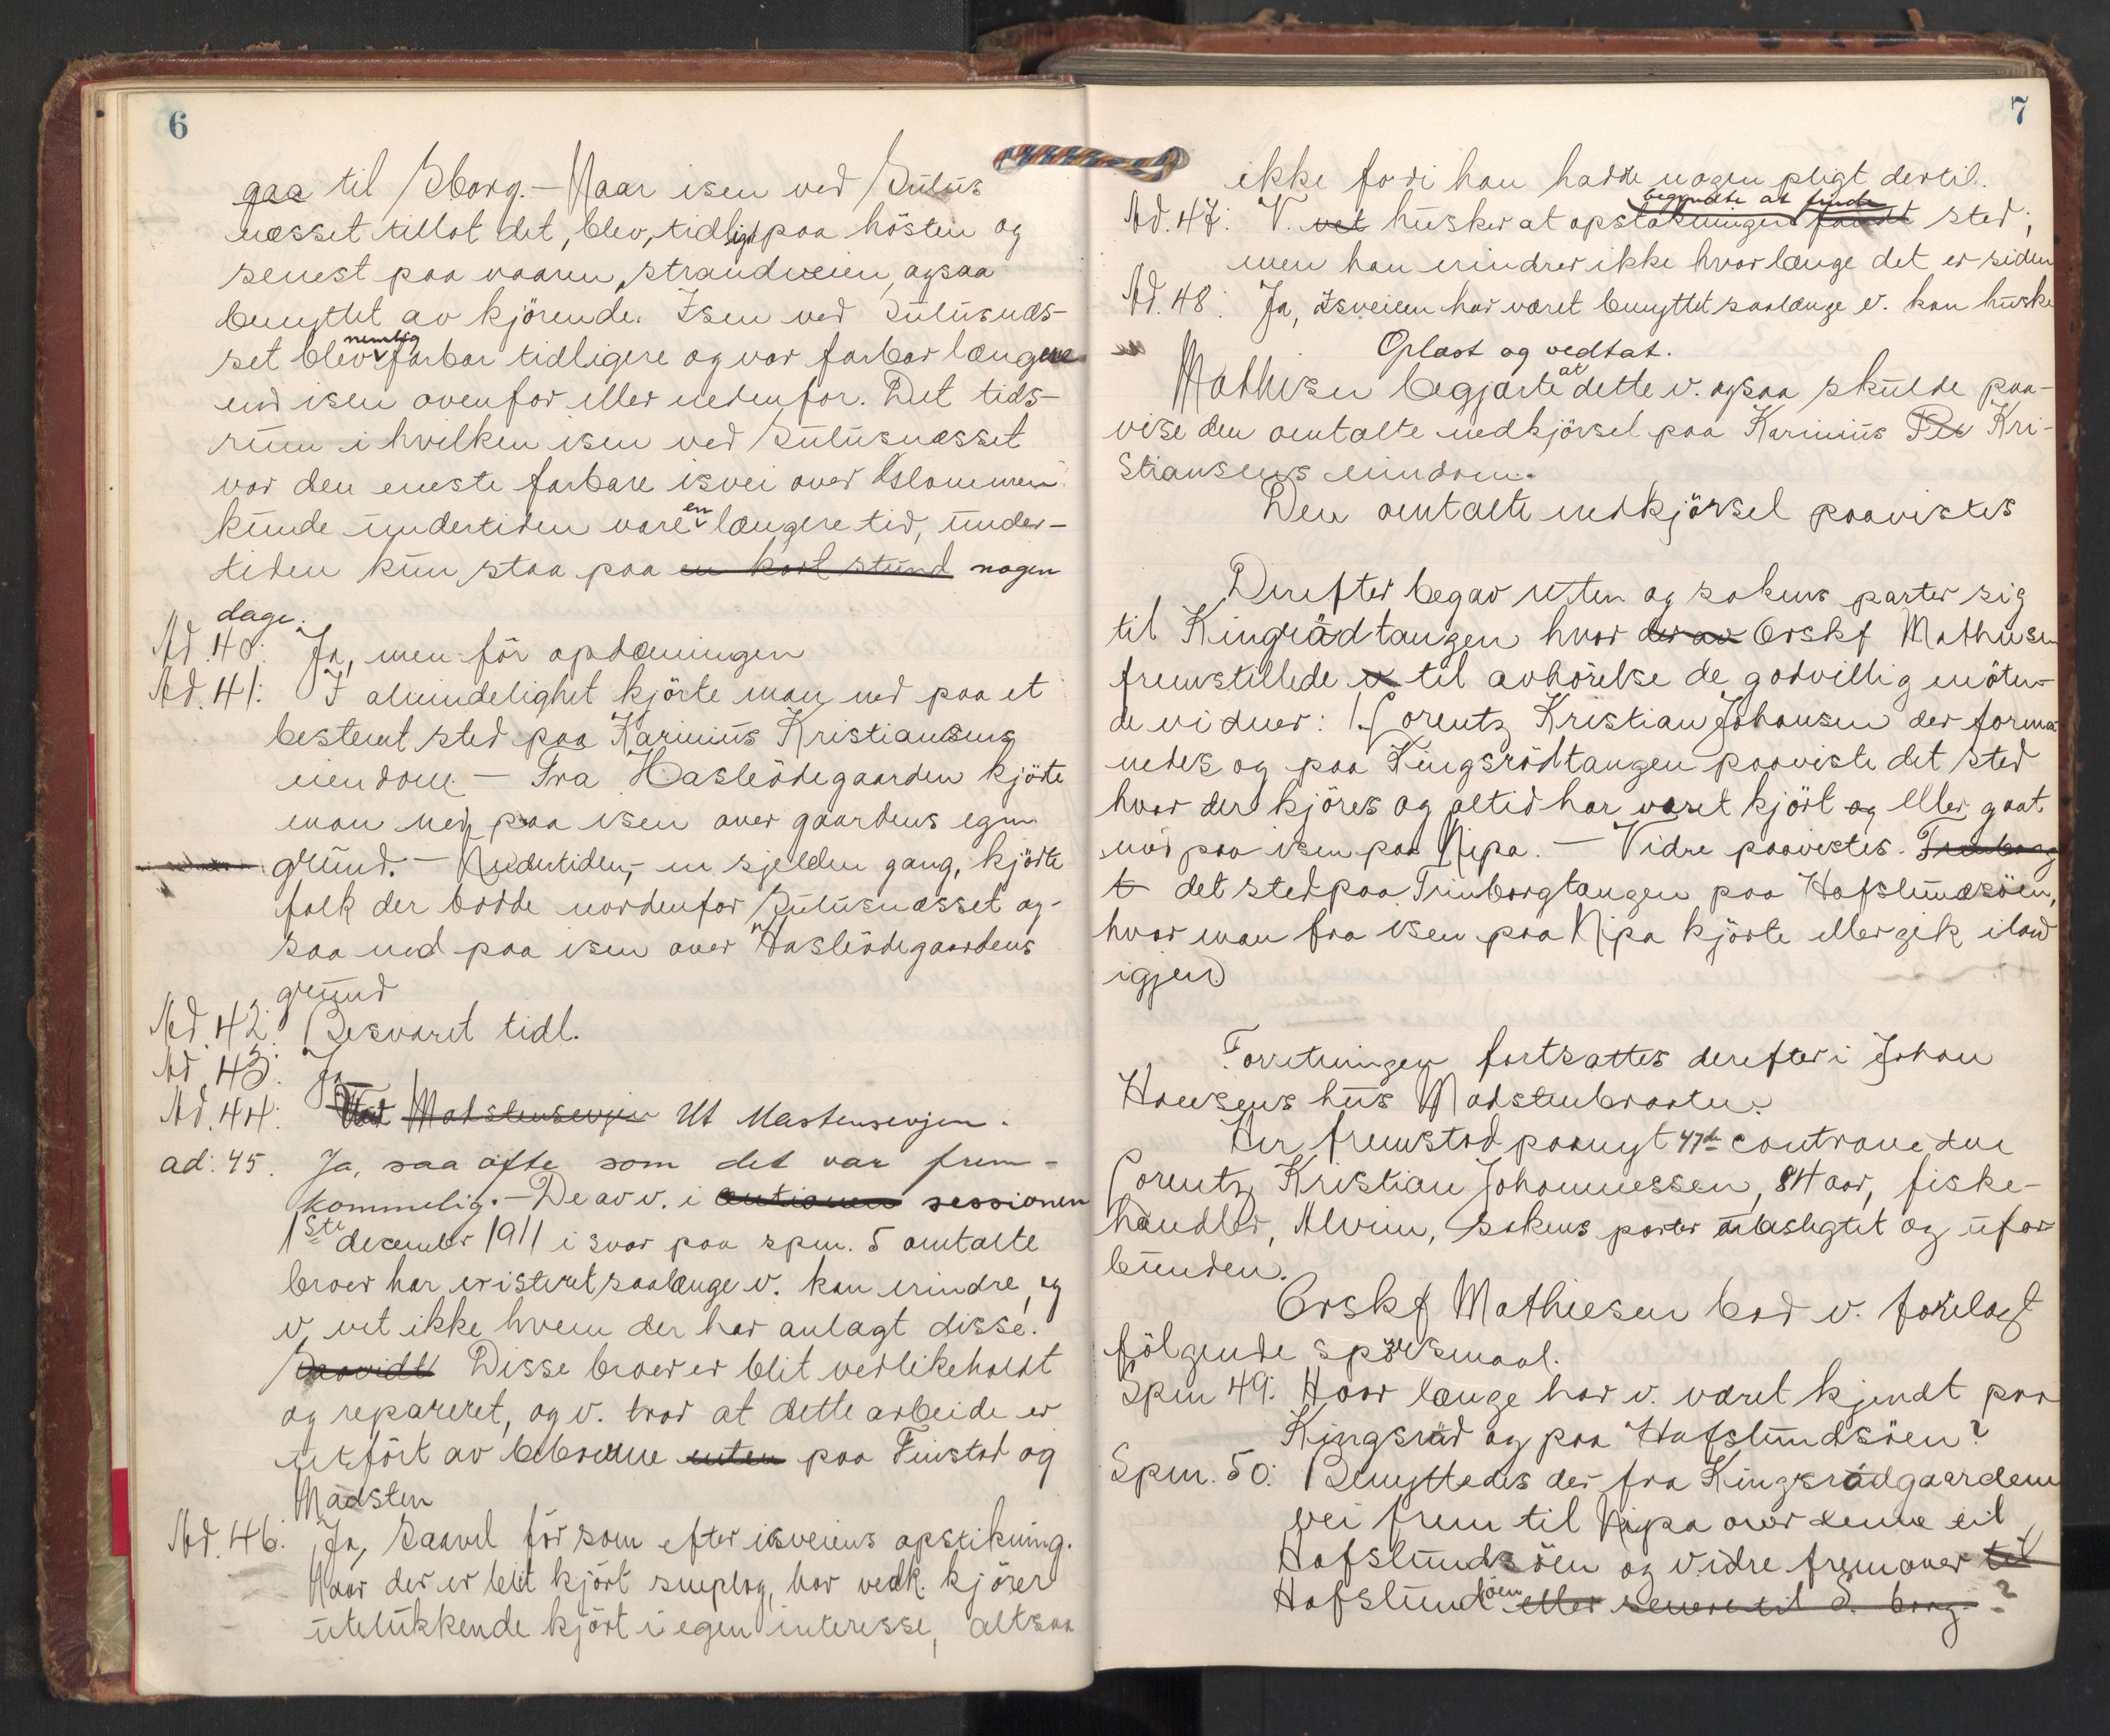 6
gaa til Sborg. – Naar isen ved Sulus
næsset tillot det, blev, tidligst paa hösten og
senest paa vaaren, strandveien, ogsaa
benyttet av kjörende. Isen ved Sulusnæs-
set blev nemlig farbar tidligere og var farbar længere
end isen ovenfor eller nedenfor. Det tids-
rum i hvilken isen ved Sulusnæsset
var den eneste farbare isvei over Glommen
kunde undertiden vare en længere tid, under-
tiden kun staa paa en kort stund nogen
dage.
Ad. 40: Ja, men för opdæmningen
Ad. 41: I almindelighet kjörte man ned paa et
bestemt sted paa Karinius Kristiansens
eiendom. – Fra Hasleödegaarden kjörte
man ned paa isen over gaardens egen
grund. – Undertiden, en sjelden gang, kjörte
folk der bodde nordenfor Sulusnæsset og-
saa ned paa isen over Hasleödegaardens
grund
Ad. 42: Besvaret tidl.
Ad. 43: Ja
Ad. 44: Ved Madstensevjen Ut Mastensevjen.
ad. 45. Ja, saa ofte som det var frem-
kommelig. – De av v. i sessionen
1ste december 1911 i svar paa spm. 5 omtalte
broer har existeret saalænge v. kan erindre, og
v. vet ikke hvem der har anlagt disse.
Saavidt Disse broer er blit vedlikeholdt
og reparert, og v. tror at dette arbeide er
utfört av beboerne enten paa Finstad og
Madsten
Ad. 46: Ja, saavel för som efter isveiens opstikning.
Naar der er blit kjört sneplog, har vedk. kjörer
utelukkende kjört i egen interesse, altsaa
7
ikke fordi han hadde nogen pligt dertil.
begyndte at finde
Ad. 47: V. vet husker at opstakningen fandt sted;
men han erindrer ikke hvorlænge det er siden
Ad. 48: Ja, isveien har været benyttet saalænge v. kan huske
Oplæst og vedtat.
Mathisen begjærte at dette v. ogsaa skulde paa-
vise den omtalte nedkjörsel paa Karinius Pe Kri-
stiansens eiendom.
Den omtalte nedkjörsel paavistes
Derefter begav retten og sakens parter sig
til Kingrådtangen hvor der av Orskf Mathiesen
fremstillede v. til avhörelse de godvillig möten-
de vidner: 1. Lorentz Kristian Johansen der forma-
nedes og paa Kingsrödtangen paaviste det sted
hvor der kjöres og altid har været kjört og eller gaat
ned paa isen paa Nipa. – Vidre paavistes Trinborg
t det sted paa Trinborgtangen paa Hafslundsöen,
hvor man fra isen paa Nipa kjörte eller gik iland
igjen
Forretningen fortsattes derefter i Johan
Hansens hus Madstenbraaten.
Her fremstod paanyt 47de contravidne
Lorentz Kristian Johannessen, 84 aar, fiske-
handler, Alvim, sakens parter ubeslegtet og ufor-
bunden.
Orskf Mathiesen bad v. forelagt
fölgende spörsmaal.
Spm 49: Hvor længe har v. været kjendt paa
Kingsrød og paa Hafslundsöen?
Spm. 50: Benyttedes der fra Kingsrådgaardene
vei frem til Nipa over denne til
Hafslundsöen og vidre fremover til
Hafslundsöen eller senere til S. borg. ?